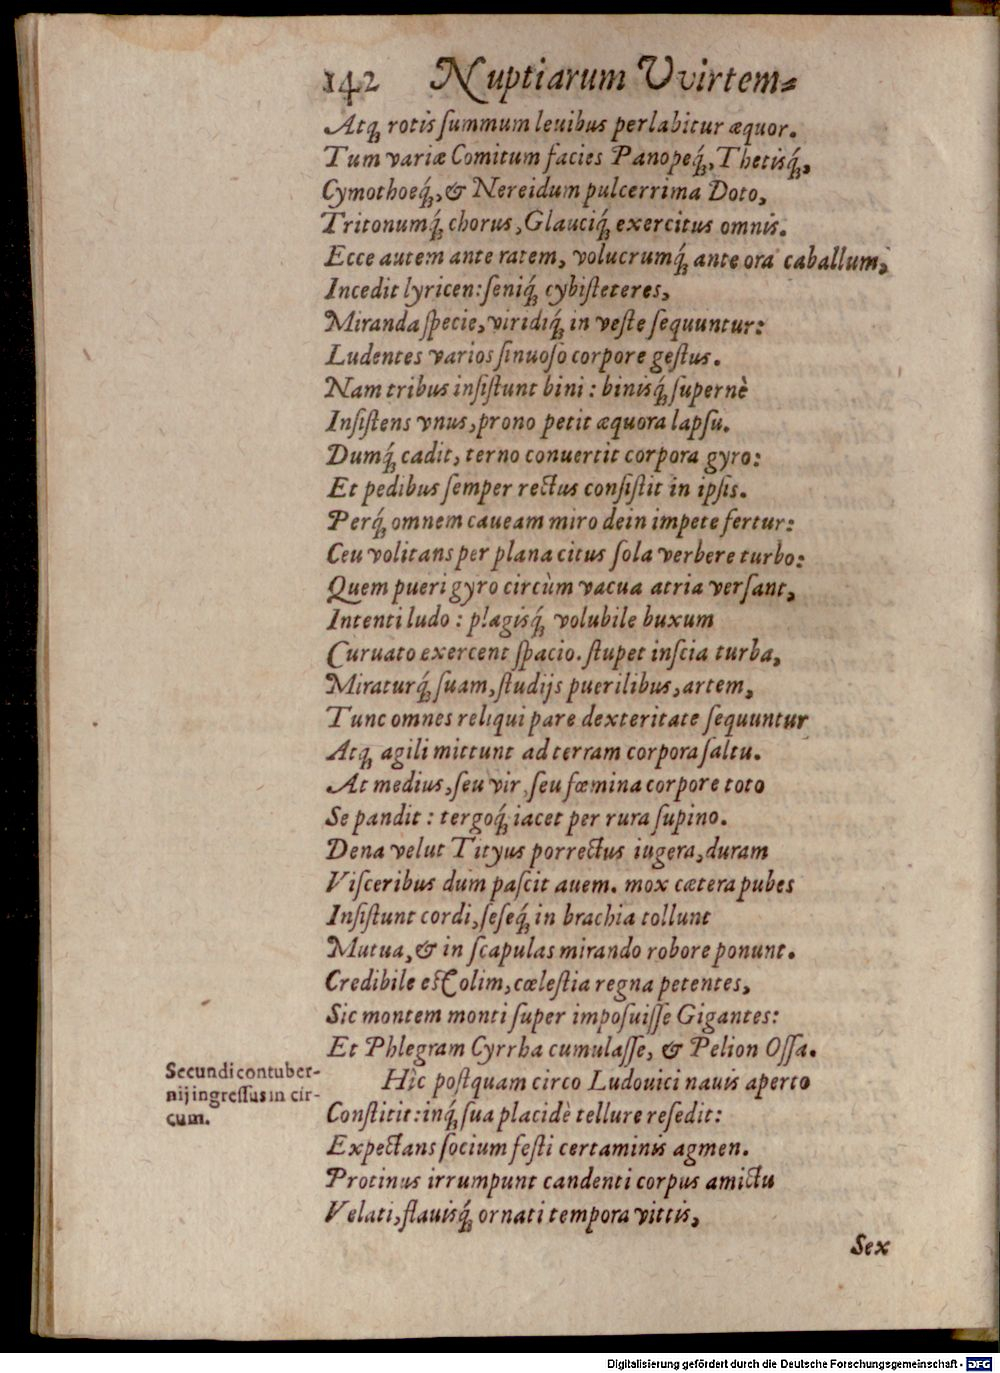 142 Nuptiarum Vvirtem⸗
Atq́ꝫ rotis ſummum leuibus perlabitur æquor.
Tum variæ Comitum facies Panopeq́ꝫ, Thetisq́ꝫ,
Cymothoeq́ꝫ, & Nereidum pulcerrima Doto,
Tritonumq́ꝫ chorus, Glauciq́ꝫ exercitus omnis.
Ecce autem ante ratem, volucrumq́ꝫ ante ora caballum,
Incedit lyricen: ſeniq́ꝫ cybiſteteres,
Miranda ſpecie, viridiq́ꝫ in veſte ſequuntur:
Ludentes varios ſinuoſo corpore geſtus.
Nam tribus inſiſtunt bini: binisq́ꝫ ſupernè
Inſiſtens vnus, prono petit æquora lapſu.
Dumq́ꝫ cadit, terno conuertit corpora gyro:
Et pedibus ſemper rectus conſiſtit in ipſis.
Perq́ꝫ omnem caueam miro dein impete fertur:
Ceu volitans per plana citus ſola verbere turbo:
Quem pueri gyro circùm vacua atria verſant,
Intenti ludo: plagisq́ꝫ volubile buxum
Curuato exercent ſpacio. ſtupet inſcia turba,
Miraturq́ꝫ ſuam, ſtudijs puerilibus, artem,
Tunc omnes reliqui pare dexteritate ſequuntur
Atqꝫ agili mittunt ad terram corpora ſaltu.
At medius, ſeu vir, ſeu fœmina corpore toto
Se pandit: tergoq́ꝫ iacet per rura ſupino.
Dena velut Tityus porrectus iugera, duram
Viſceribus dum paſcit auem. mox cætera pubes
Inſiſtunt cordi, ſeſeq́ꝫ in brachia tollunt
Mutua, & in ſcapulas mirando robore ponunt.
Credibile eſt olim, cœleſtia regna petentes,
Sic montem monti ſuper impoſuiſſe Gigantes:
Et Phlegram Cyrrha cumulaſſe, & Pelion Oſſa.
Secundi contuber-
nij ingreſſus in cir-
cum.
Hîc poſtquam circo Ludouici nauis aperto
Conſtitit: inq́ꝫ ſua placidè tellure reſedit:
Expectans ſocium feſti certaminis agmen.
Protinus irrumpunt candenti corpus amictu
Velati, flauisq́ꝫ ornati tempora vittis,
Sex
Digitalisierung gefördert durch die Deutsche Forschungsgemeinschaft - DFG